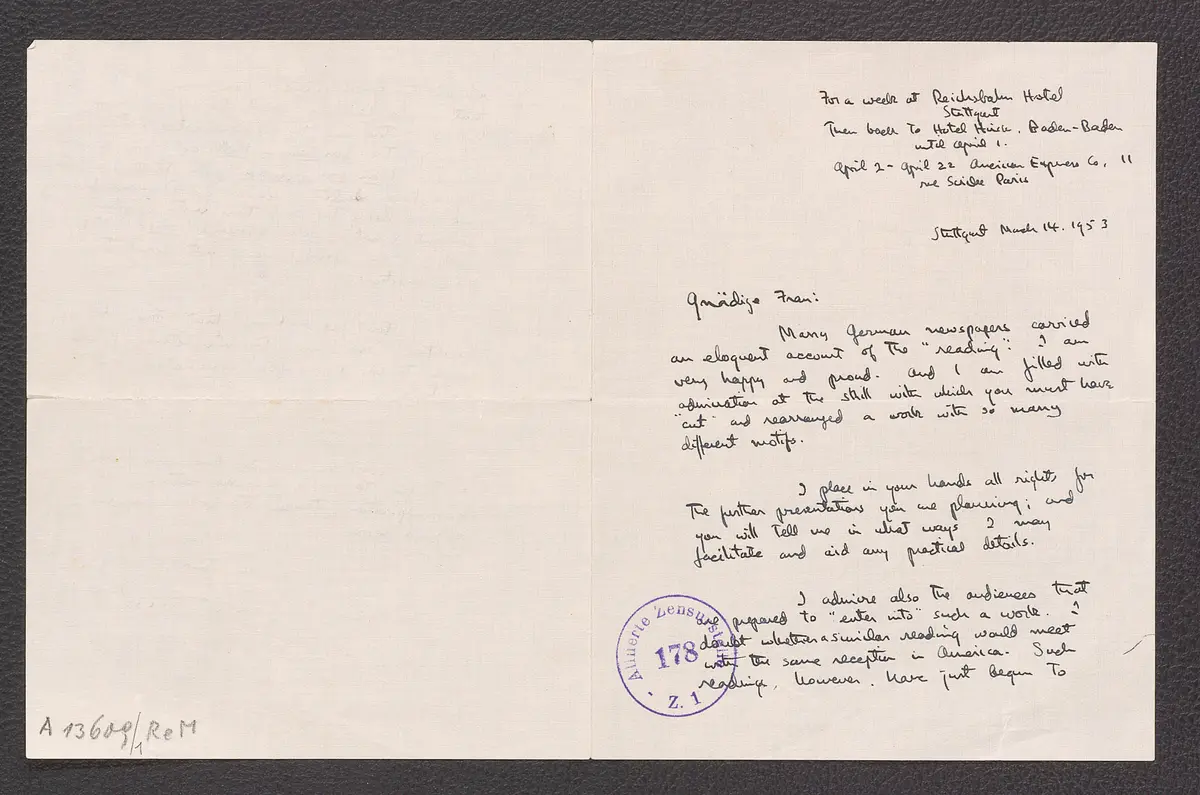 For a week at Reichsbahn Hotel
Stuttgart
Then back to Hotel Hirsch, Baden-Baden
until April 1.
April 2 - April 22 American Express Co, 11
rue Scribe Paris
Stuttgart March 14. 1953
Gnädige Frau:
Many German newspapers carried
an eloquent account of the "reading". I am
very happy and proud. And I am filled with
admiration at the skill with which you must have
"cut" and rearranged a work with so many
different motifs.
I place in your hands all rights for
the further presentations you are planning; and
you will tell me in what ways I may
facilitate and aid any practical details.
I admire also the audiences that
are prepared to "enter into" such a work. I
doubt whether a similar reading would meet
with the same reception in America. Such
readings, however, have just begun to
Alliierte Zensurstelle
178
Z. 1
A 13609/1 ReM